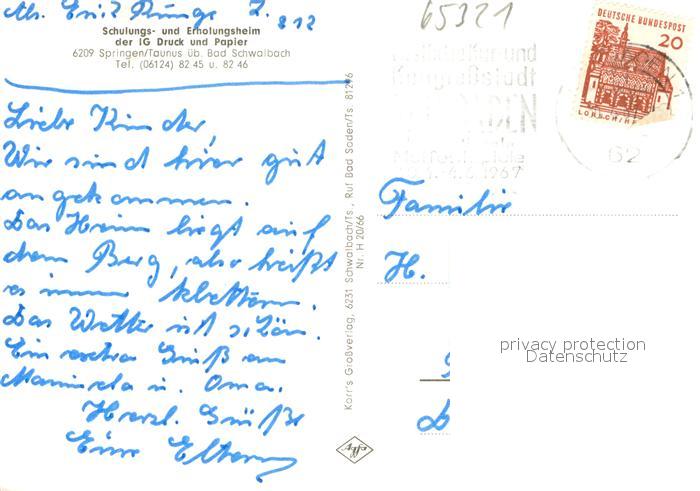 Abs. Erich Runge Z. 212
Schulungs- und Erholungsheim
der IG Druck und Papier
6209 Springen/Taunus üb. Bad Schwalbach
Tel. (06124) 82 45 u. 82 46
Liebe Kinder,
Wir sind hier gut
angekommen.
Das Heim liegt auf
dem Berg, also heißt
es immer klettern.
Das Wetter ist schön.
Ein extra Gruß an
Manuela u. Oma.
Herzl. Grüße
Eure Eltern
Korr's Großverlag, 6231 Schwalbach/Ts., Ruf Bad Soden/Ts. 81296
Nr. H 20/66
Agfa
65321
Kongreßstadt
1967
62
DEUTSCHE BUNDESPOST
20
LORSCH/HE
Familie
H.
privacy protection
Datenschutz